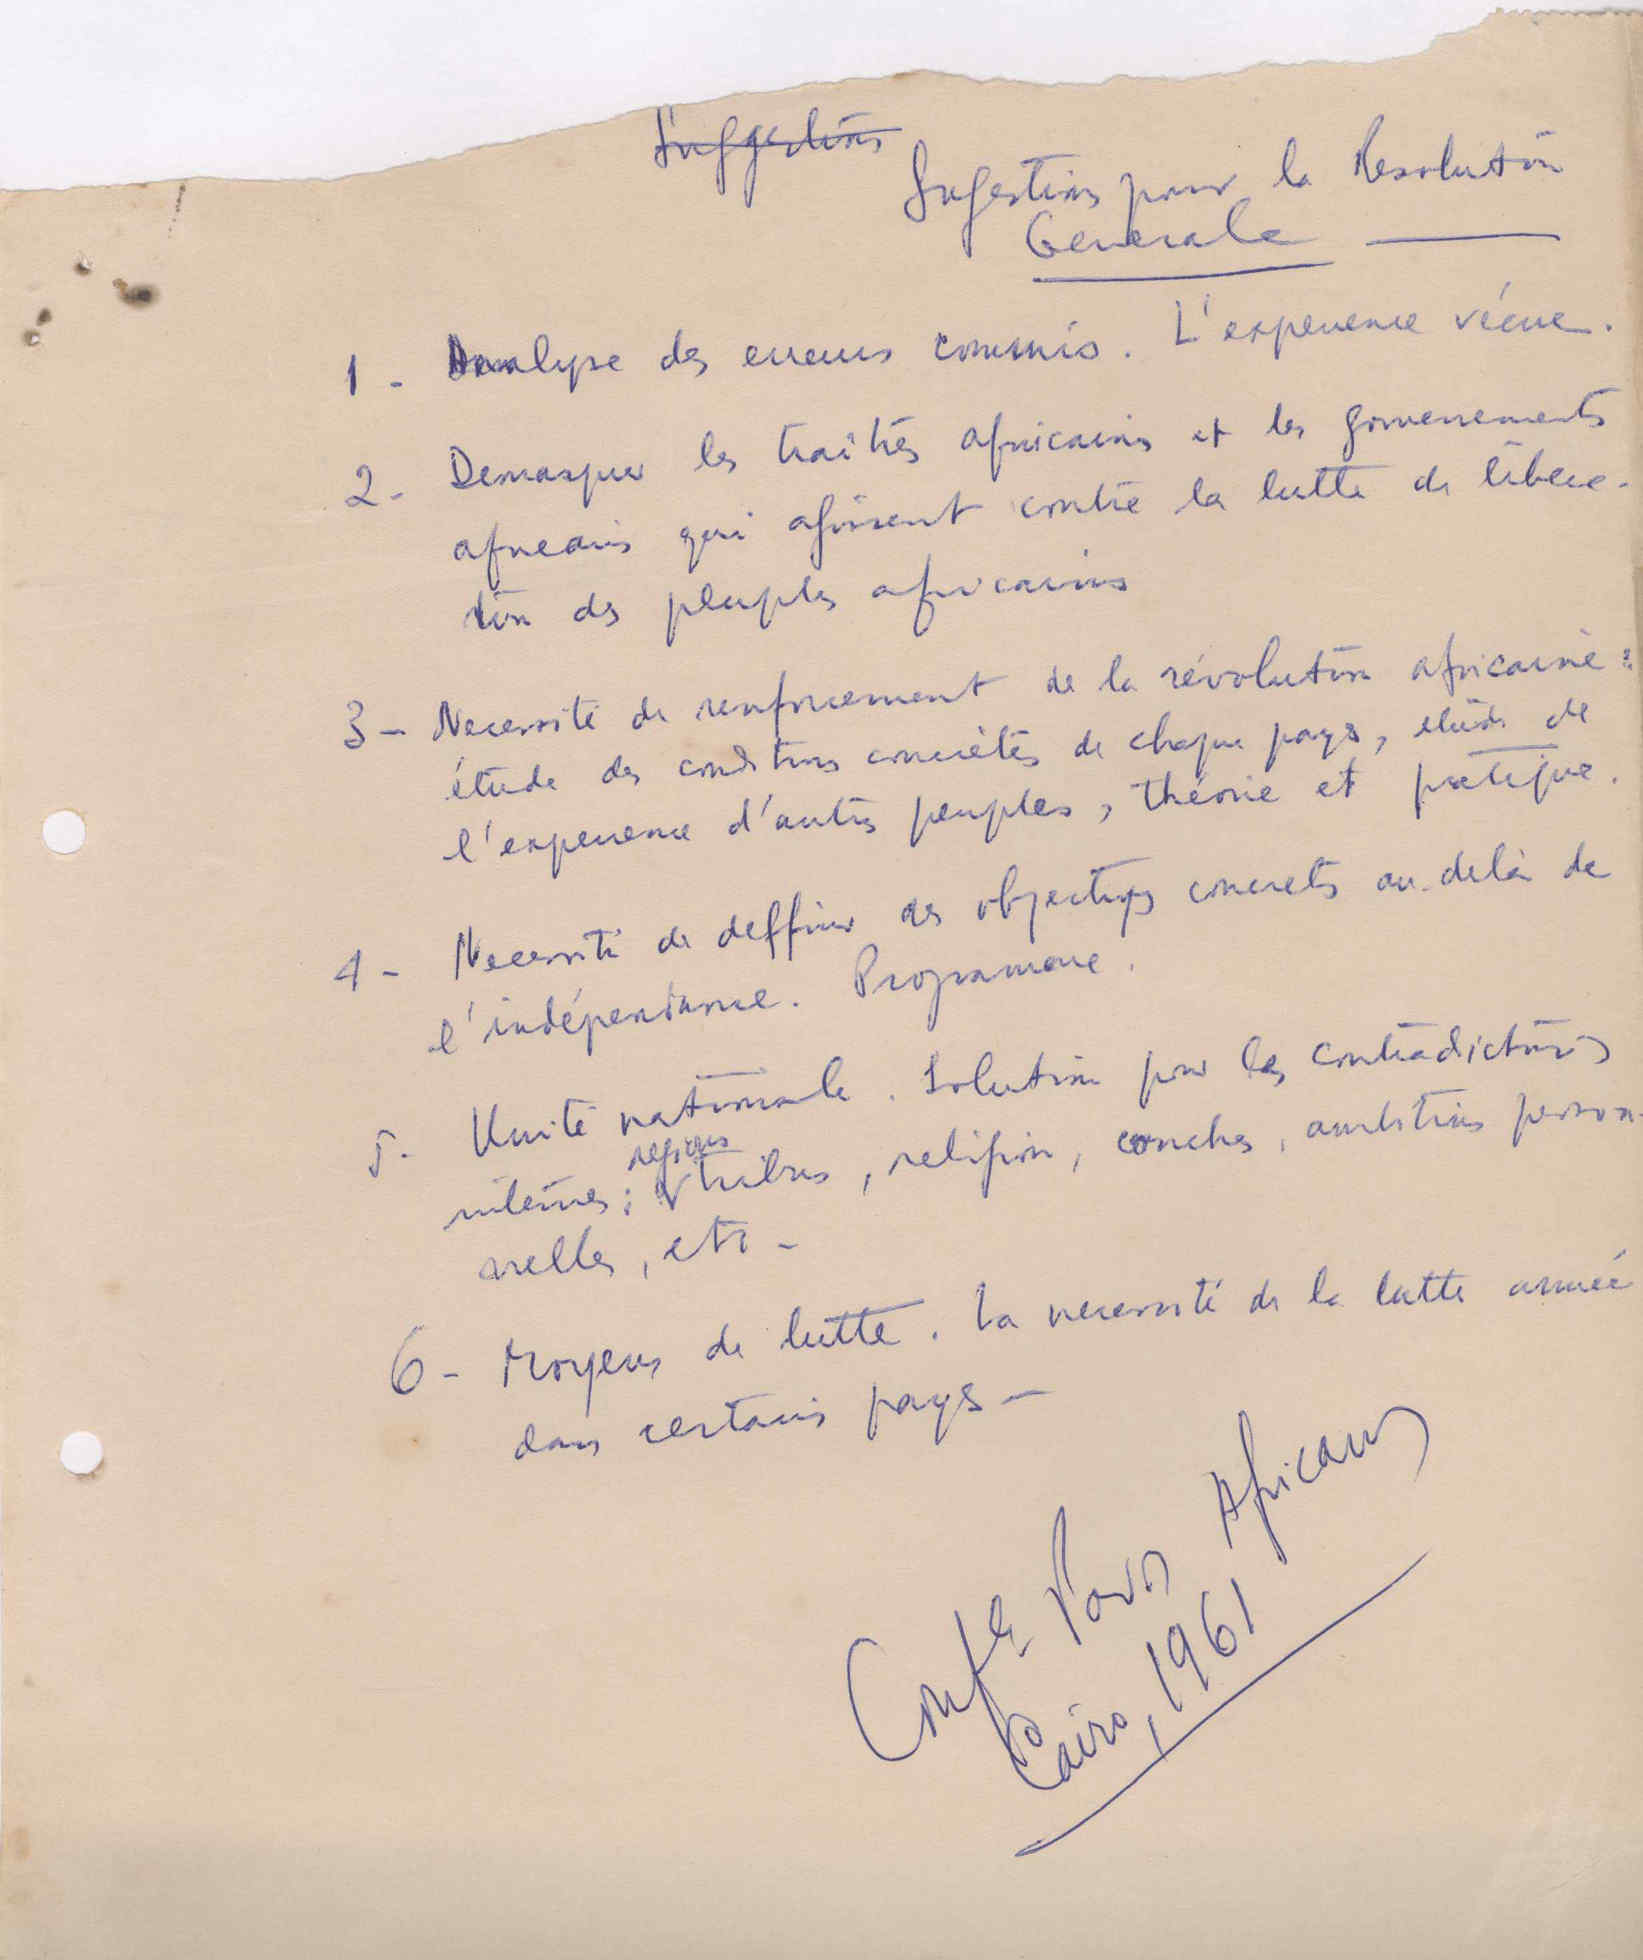 Suggestions
Sugestions pour la Resolution
Generale
1 - Analyse des erreurs commis. L'experience vécue.
2 - Demasquer les traîtres africains et les gouvernements
africains qui agissent contre la lutte de libéra-
tion des peuples africains
3 - Necessité de renforcement de la révolution africaine :
étude des conditions concrètes de chaque pays, étude de
l'experience d'autres peuples, théorie et pratique.
4 - Necessité de deffinir des objectifs concrets au-delà de
l'indépendance. Programme.
5 - Unité nationale. Solution pour les contradictions
internes : regions tribus, religion, couches, ambitions person-
nelles, etc -
6 - Moyens de lutte. La necessité de la lutte armée
dans certains pays -
Conf. Povos Africanos
Cairo, 1961